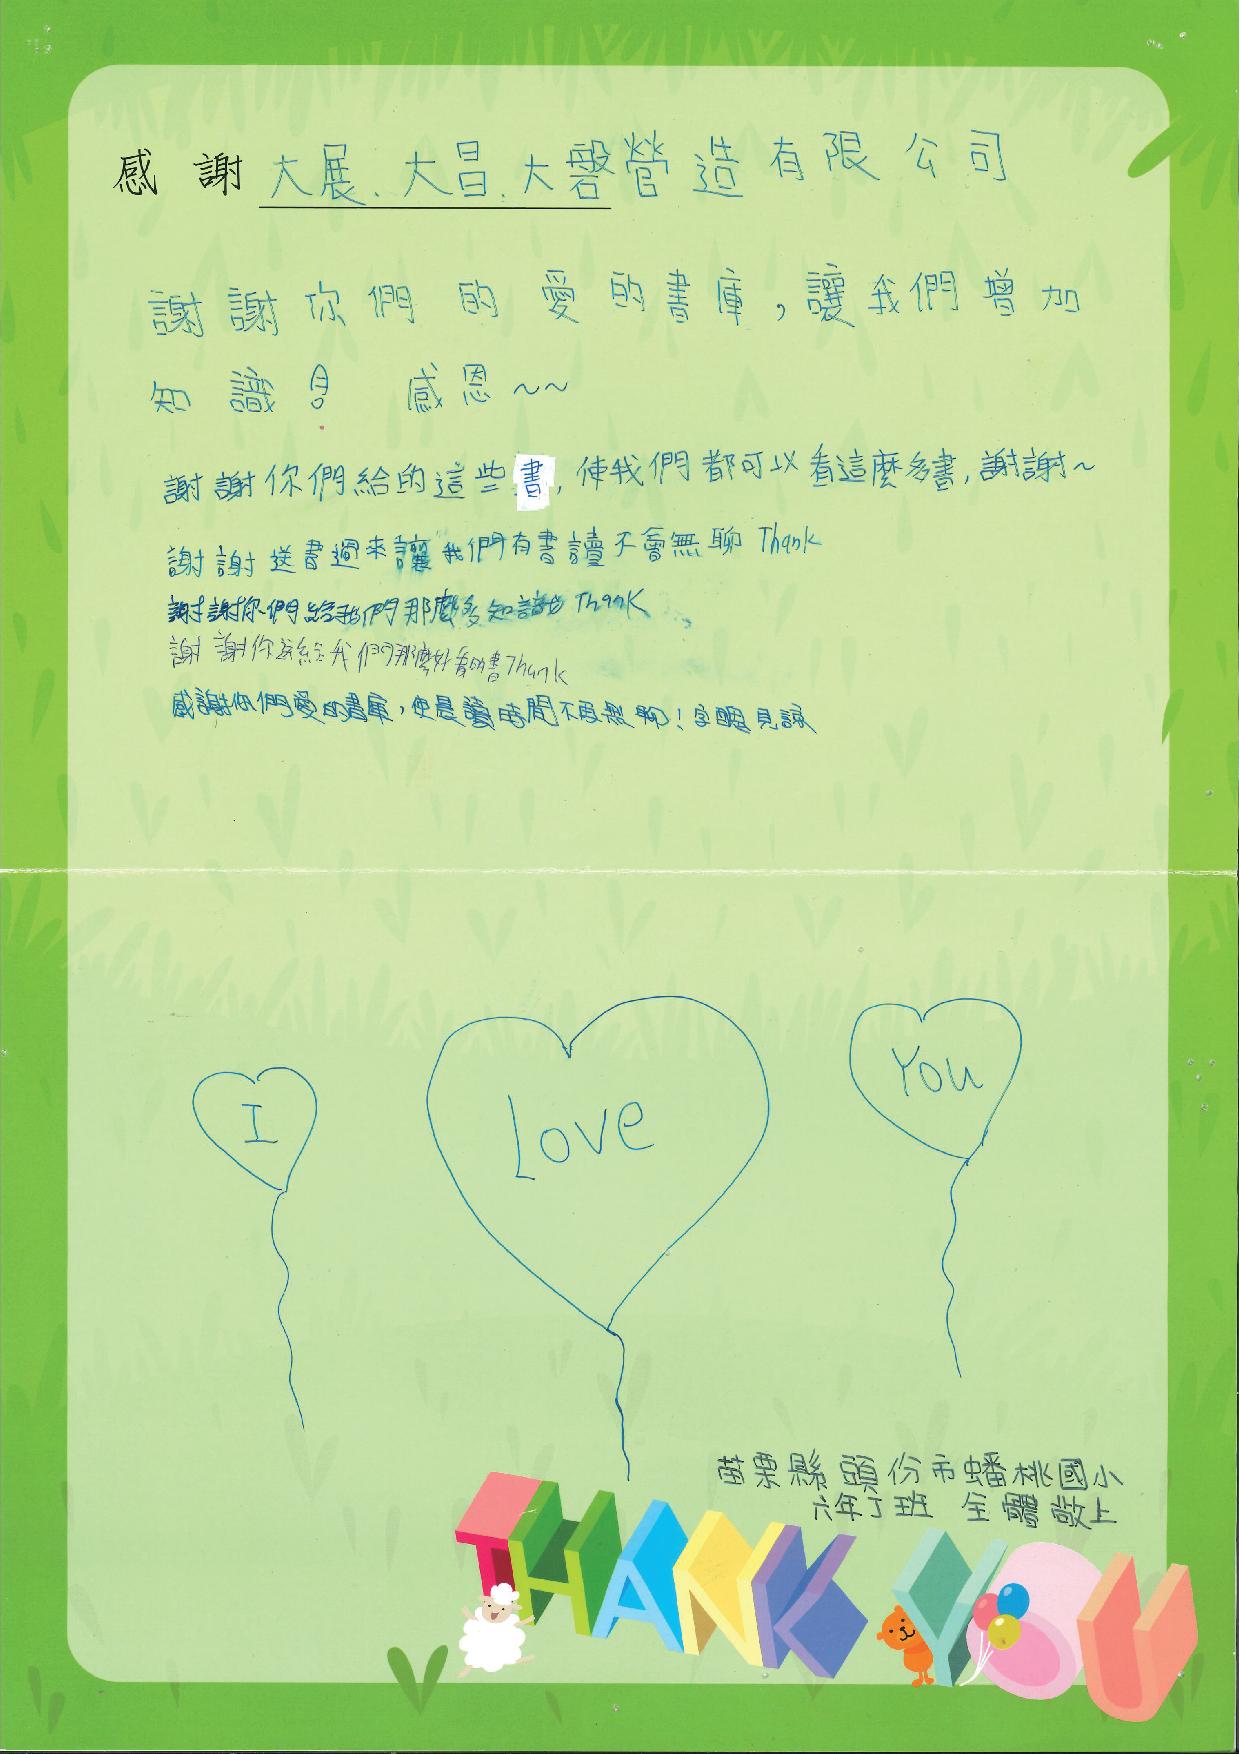 感謝大展、大昌、大磬營造有限公司
謝謝你們的愛的書庫，讓我們增加
知識！ 感恩～～
謝謝你們給的這些書，使我們都可以看這麼多書，謝謝～
謝謝送書過來讓我們有書讀不會無聊 Thank
謝謝你們給我們那麼多知識 Thank
謝謝你送給我們那麼好看的書 Thank
感謝你們愛的書庫，使晨讀時間不再無聊！字醜見諒
I Love You
苗栗縣頭份市蟠桃國小
六年丁班 全體敬上
THANK YOU